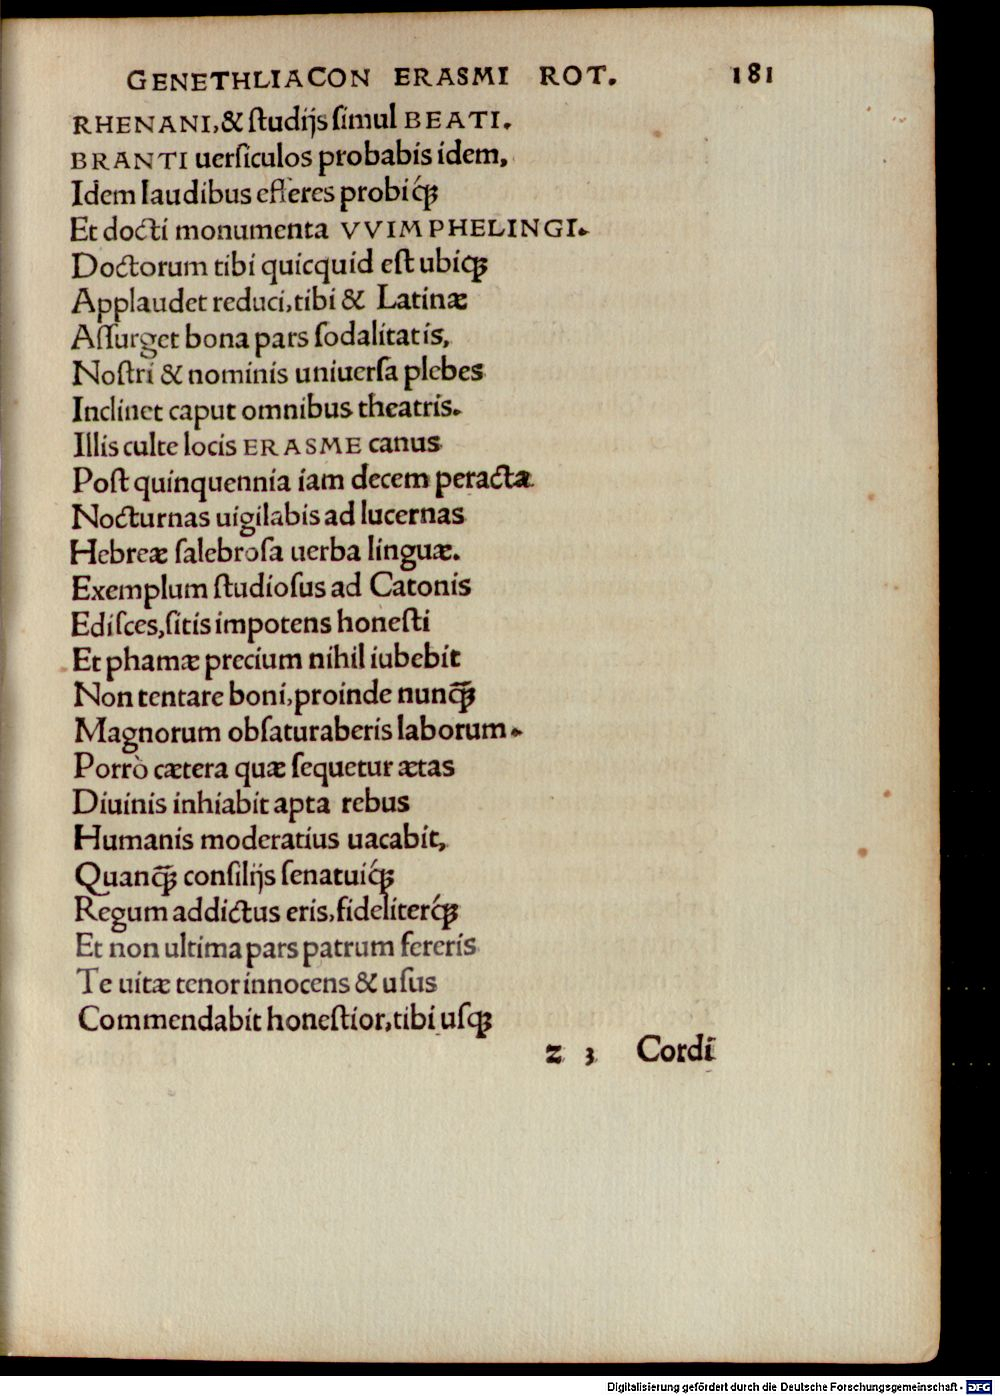 GENETHLIACON ERASMI ROT. 181
RHENANI,& ſtudijs ſimul BEATI.
BRANTI uerſiculos probabis idem,
Idem laudibus efferes probiq́ꝫ
Et docti monumenta VVIMPHELINGI.
Doctorum tibi quicquid eſt ubiqꝫ
Applaudet reduci,tibi & Latinæ
Aſſurget bona pars ſodalitatis,
Noſtri & nominis uniuerſa plebes
Inclinet caput omnibus theatris.
Illis culte locis ERASME canus
Poſt quinquennia iam decem peracta
Nocturnas uigilabis ad lucernas
Hebreæ ſalebroſa uerba linguæ.
Exemplum ſtudioſus ad Catonis
Ediſces,ſitis impotens honeſti
Et phamæ precium nihil iubebit
Non tentare boni,proinde nunq̃ꝫ
Magnorum obſaturaberis laborum.
Porrò cætera quæ ſequetur ætas
Diuinis inhiabit apta rebus
Humanis moderatius uacabit,
Quanq̃ꝫ conſilijs ſenatuiq́ꝫ
Regum addictus eris,fideliterq́ꝫ
Et non ultima pars patrum fereris
Te uitæ tenor innocens & uſus
Commendabit honeſtior,tibi uſqꝫ
z 3 Cordi
Digitalisierung gefördert durch die Deutsche Forschungsgemeinschaft - DFG